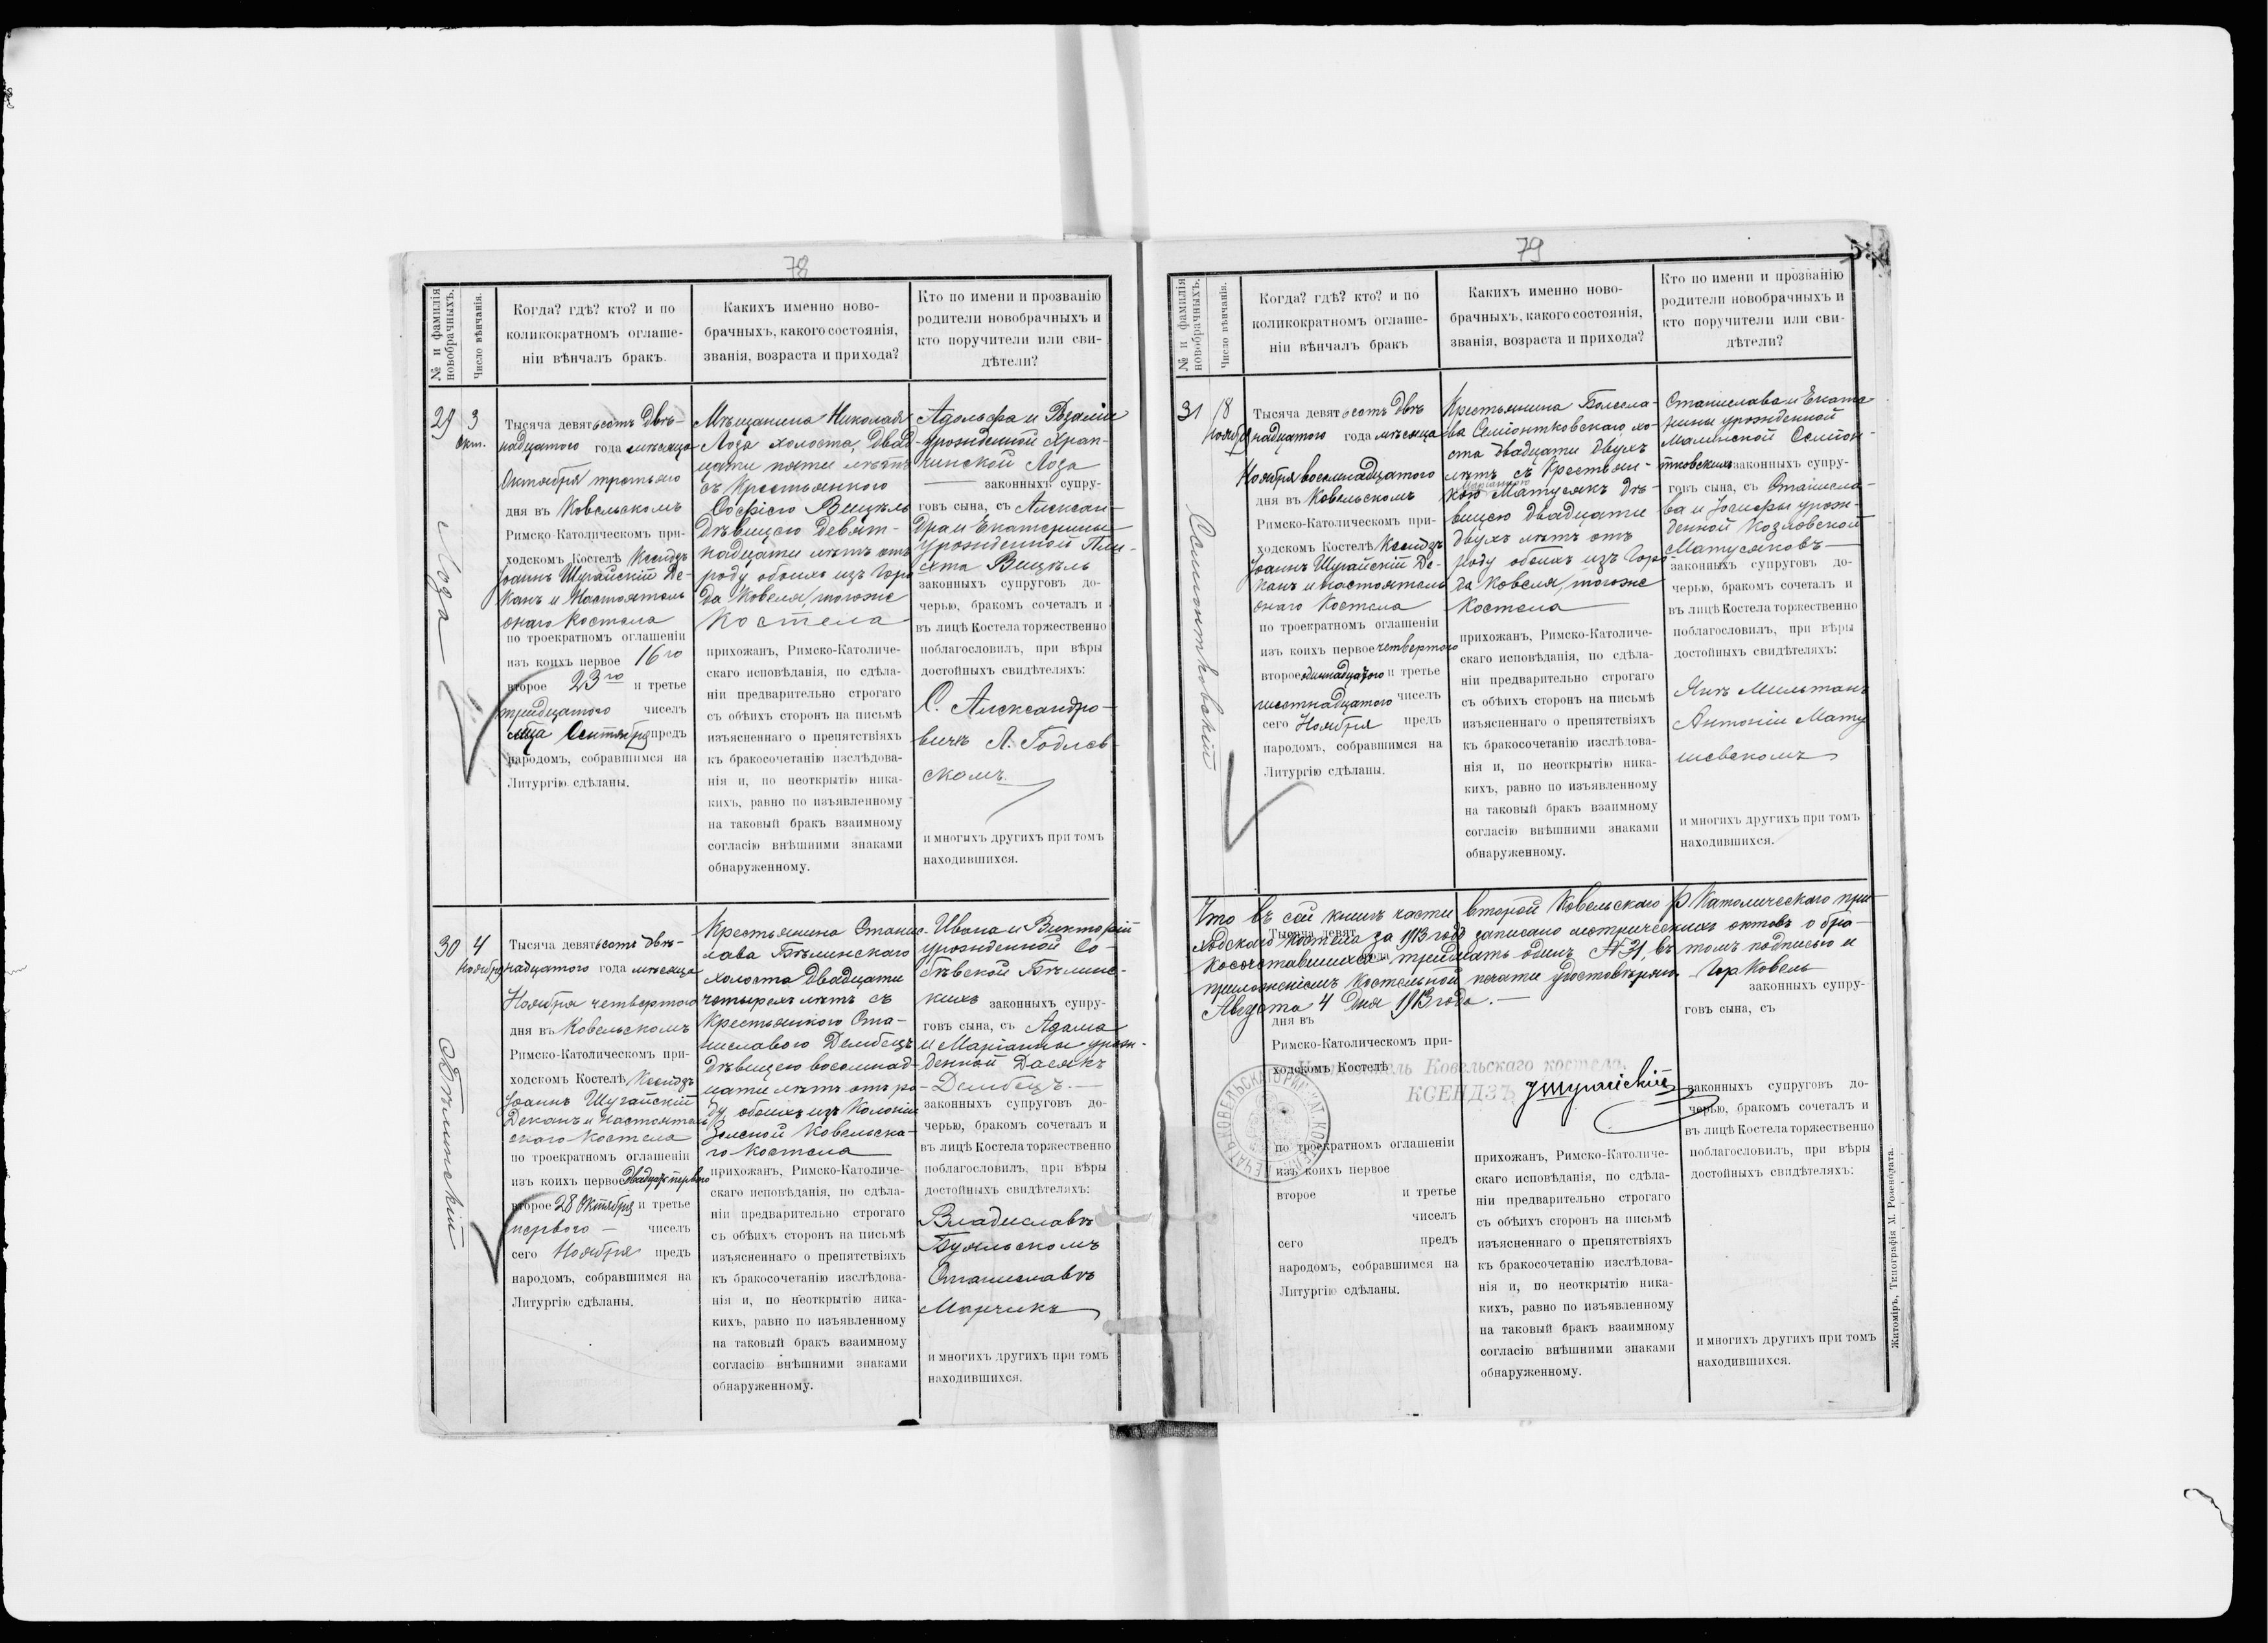 78
№ и фамилія новобрачныхъ.
Число вѣнчанія.
Когда? гдѣ? кто? и по
коликократномъ оглаше-
ніи вѣнчалъ бракъ.
Какихъ именно ново-
брачныхъ, какого состоянія,
званія, возраста и прихода?
Кто по имени и прозванію
родители новобрачныхъ и
кто поручители или сви-
дѣтели?
29
3
Окт.
Лоза
Тысяча девятьсотъ двѣ-
надцатого года мѣсяца
Октября третьяго
дня въ Ковельскомъ
Римско-Католическомъ при-
ходскомъ Костелѣ Ксендзъ
Іоаннъ Шугайскій Де-
канъ и Настоятель
онаго Костела
по троекратномъ оглашеніи
изъ коихъ первое 16го
второе 23го и третье
тридцатого чиселъ
Сентября предъ
народомъ, собравшимся на
Литургію сдѣланы.
Мѣщанина Николая
Лоза холоста, двад-
цати пяти лѣтъ
съ Крестьянкого
Софіею Вицѣль
дѣвицею девят-
надцати лѣтъ отъ
роду, обоихъ изъ горо
да Ковеля, тогоже
Костела
прихожанъ, Римско-Католиче-
скаго исповѣданія, по сдѣла-
ніи предварительно строгаго
съ обѣихъ сторонъ на письмѣ
изъясненнаго о препятствіяхъ
къ бракосочетанію изслѣдова-
нія и, по неоткрытію ника-
кихъ, равно по изъявленному
на таковый бракъ взаимному
согласію внѣшними знаками
обнаруженному.
Адольфа и Розаліи
урожденной Храп-
чинской Лоза
законныхъ супру-
говъ сына, съ Алексан-
дра и Екатерины
урожденной
Вицѣль
законныхъ супруговъ до-
черью, бракомъ сочеталъ и
въ лицѣ Костела торжественно
поблагословилъ, при вѣры
достойныхъ свидѣтеляхъ:
С. Александро-
вичъ А. Годлев-
скомъ
и многихъ другихъ при томъ
находившихся.
30
4
Ноября
Бѣлинскій
Тысяча девятьсотъ двѣ-
надцатого года мѣсяца
Ноября четвертого
дня въ Ковельскомъ
Римско-Католическомъ при-
ходскомъ Костелѣ Ксендзъ
Іоаннъ Шугайскій
Деканъ и Настоятель
Костела
по троекратномъ оглашеніи
изъ коихъ первое двадцать первого
второе 28 Октября и третье
первого — чиселъ
сего Ноября предъ
народомъ, собравшимся на
Литургію сдѣланы.
Крестьянина Станис-
лава Бѣлинскаго
холоста двадцати
четырехъ лѣтъ съ
Крестьянкого Ста-
ниславого Дембецъ
дѣвицею восемнад-
цати лѣтъ отъ ро-
ду, обоихъ изъ Колоніи
Ковельска-
го Костела
прихожанъ, Римско-Католиче-
скаго исповѣданія, по сдѣла-
ніи предварительно строгаго
съ обѣихъ сторонъ на письмѣ
изъясненнаго о препятствіяхъ
къ бракосочетанію изслѣдова-
нія и, по неоткрытію ника-
кихъ, равно по изъявленному
на таковый бракъ взаимному
согласію внѣшними знаками
обнаруженному.
Ивана и Викторіи
урожденной Со-
бѣвской Бѣлинс-
кихъ законныхъ супру-
говъ сына, съ Адама
и Маріанны урож-
денной Дасякъ
Дембецъ.—
законныхъ супруговъ до-
черью, бракомъ сочеталъ и
въ лицѣ Костела торжественно
поблагословилъ, при вѣры
достойныхъ свидѣтеляхъ:
Владиславъ
Буяльскомъ
Станиславъ
Марчикъ
и многихъ другихъ при томъ
находившихся.
79
№ и фамилія новобрачныхъ.
Число вѣнчанія.
Когда? гдѣ? кто? и по
коликократномъ оглаше-
ніи вѣнчалъ бракъ
Какихъ именно ново-
брачныхъ, какого состоянія,
званія, возраста и прихода?
Кто по имени и прозванію
родители новобрачныхъ и
кто поручители или сви-
дѣтели?
31
18
Ноября
Сѣмионтковскій
Тысяча девятьсотъ двѣ
надцатого года мѣсяца
Ноября восемнадцатого
дня въ Ковельскомъ
Римско-Католическомъ при-
ходскомъ Костелѣ Ксендзъ
Іоаннъ Шугайскій Де-
канъ и настоятель
онаго Костела
по троекратномъ оглашеніи
изъ коихъ первое четвертого
второе одиннадцатого и третье
шестнадцатого чиселъ
сего Ноября предъ
народомъ, собравшимся на
Литургію сдѣланы.
Крестьянина Болесла-
ва Семіонтковскаго хо-
ста двадцати двухъ
лѣтъ съ Крестьян-
Маріанного
кою Матусякъ дѣ-
вицею двадцати
двухъ лѣтъ отъ
роду обоихъ изъ горо
да Ковеля, тогоже
Костела
прихожанъ, Римско-Католиче-
скаго исповѣданія, по сдѣла-
ніи предварительно строгаго
съ обѣихъ сторонъ на письмѣ
изъясненнаго о препятствіяхъ
къ бракосочетанію изслѣдова-
нія и, по неоткрытію ника-
кихъ, равно по изъявленному
на таковый бракъ взаимному
согласію внѣшними знаками
обнаруженному.
Станислава и Екате
рины урожденной
Малинской Семіон-
тковскихъ законныхъ супру-
говъ сына, съ Станисла-
ва и Іосифы урож-
денной Козловской
Матусяковъ
законныхъ супруговъ до-
черью, бракомъ сочеталъ и
въ лицѣ Костела торжественно
поблагословилъ, при вѣры
достойныхъ свидѣтеляхъ:
Янъ Мильтанъ
Антоніи Мату
шевскомъ
и многихъ другихъ при томъ
находившихся.
Что въ сей книгѣ части второй Ковельскаго Р Католическаго при-
ходскаго Костела за 1913 годъ записано метрическихъ актовъ о бра-
косочетавшихся тридцать одинъ №31, въ томъ подписью и
приложеніемъ Костельной печати удостовѣряю. Гор Ковель
Августа 4 дня 1913 года.—
Тысяча девят
законныхъ супру-
говъ сына, съ
дня въ
Римско-Католическомъ при-
ходскомъ Костелѣ
Настоятель Ковельскаго костела,
КСЕНДЗЪ
законныхъ супруговъ до-
черью, бракомъ сочеталъ и
въ лицѣ Костела торжественно
поблагословилъ, при вѣры
достойныхъ свидѣтеляхъ:
по троекратномъ оглашеніи
изъ коихъ первое
второе и третье
чиселъ
сего предъ
народомъ, собравшимся на
Литургію сдѣланы.
прихожанъ, Римско-Католиче-
скаго исповѣданія, по сдѣла-
ніи предварительно строгаго
съ обѣихъ сторонъ на письмѣ
изъясненнаго о препятствіяхъ
къ бракосочетанію изслѣдова-
нія и, по неоткрытію ника-
кихъ, равно по изъявленному
на таковый бракъ взаимному
согласію внѣшними знаками
обнаруженному.
и многихъ другихъ при томъ
находившихся.
Житоміръ, Типографія М. Розенблата.